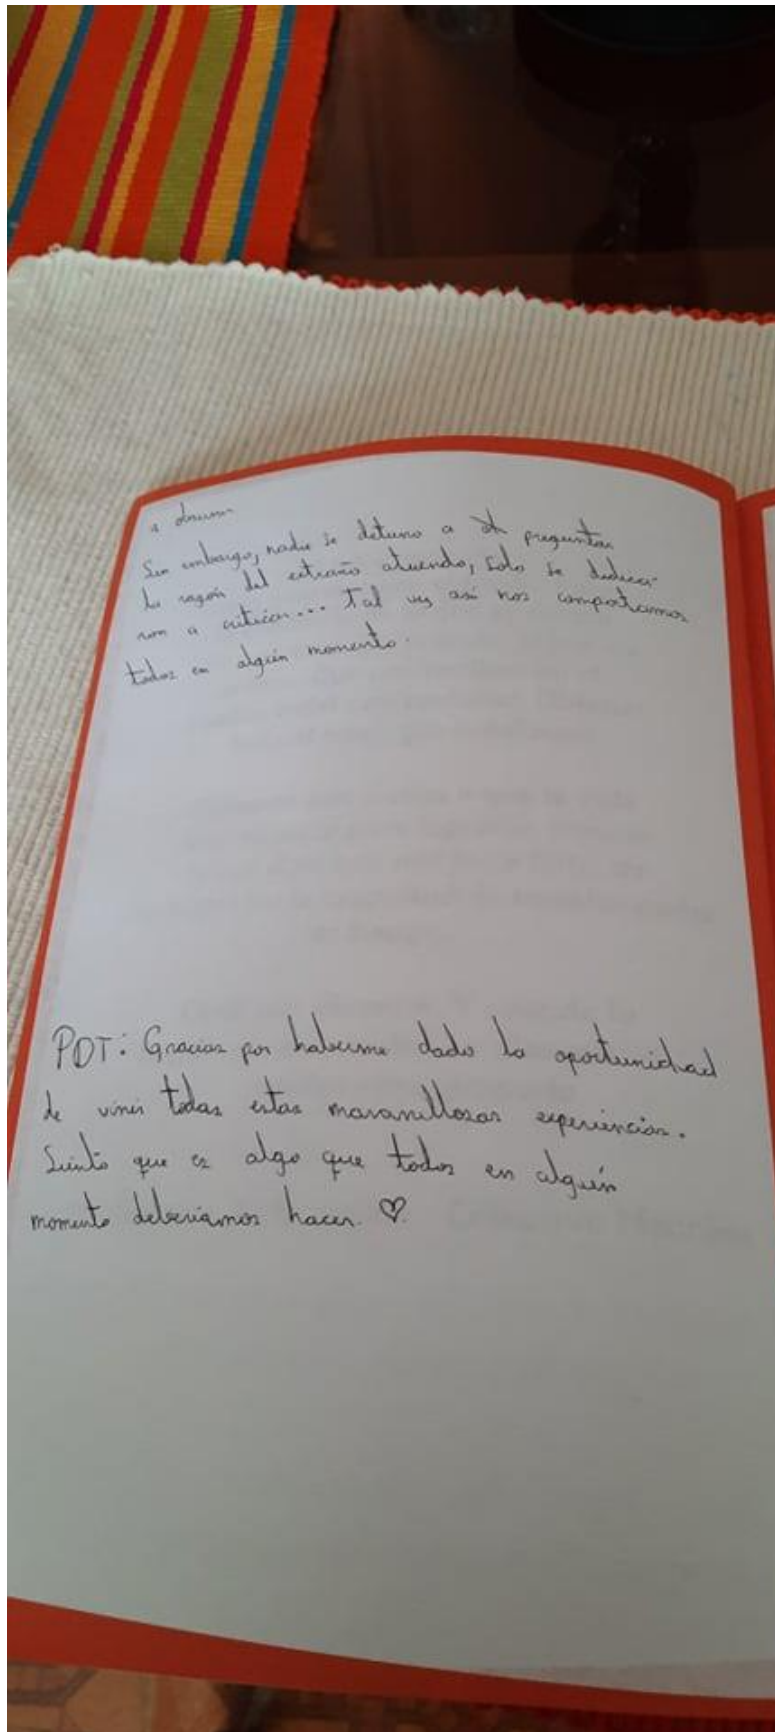 a
Sin embargo, nadie se detuvo a preguntar
la razón del extraño atuendo, solo se dedica-
ron a criticar... Tal vez así nos comportamos
todos en algún momento.
PDT: Gracias por haberme dado la oportunidad
de vivir todas estas maravillosas experiencias.
Siento que es algo que todos en algún
momento deberíamos hacer. ♡